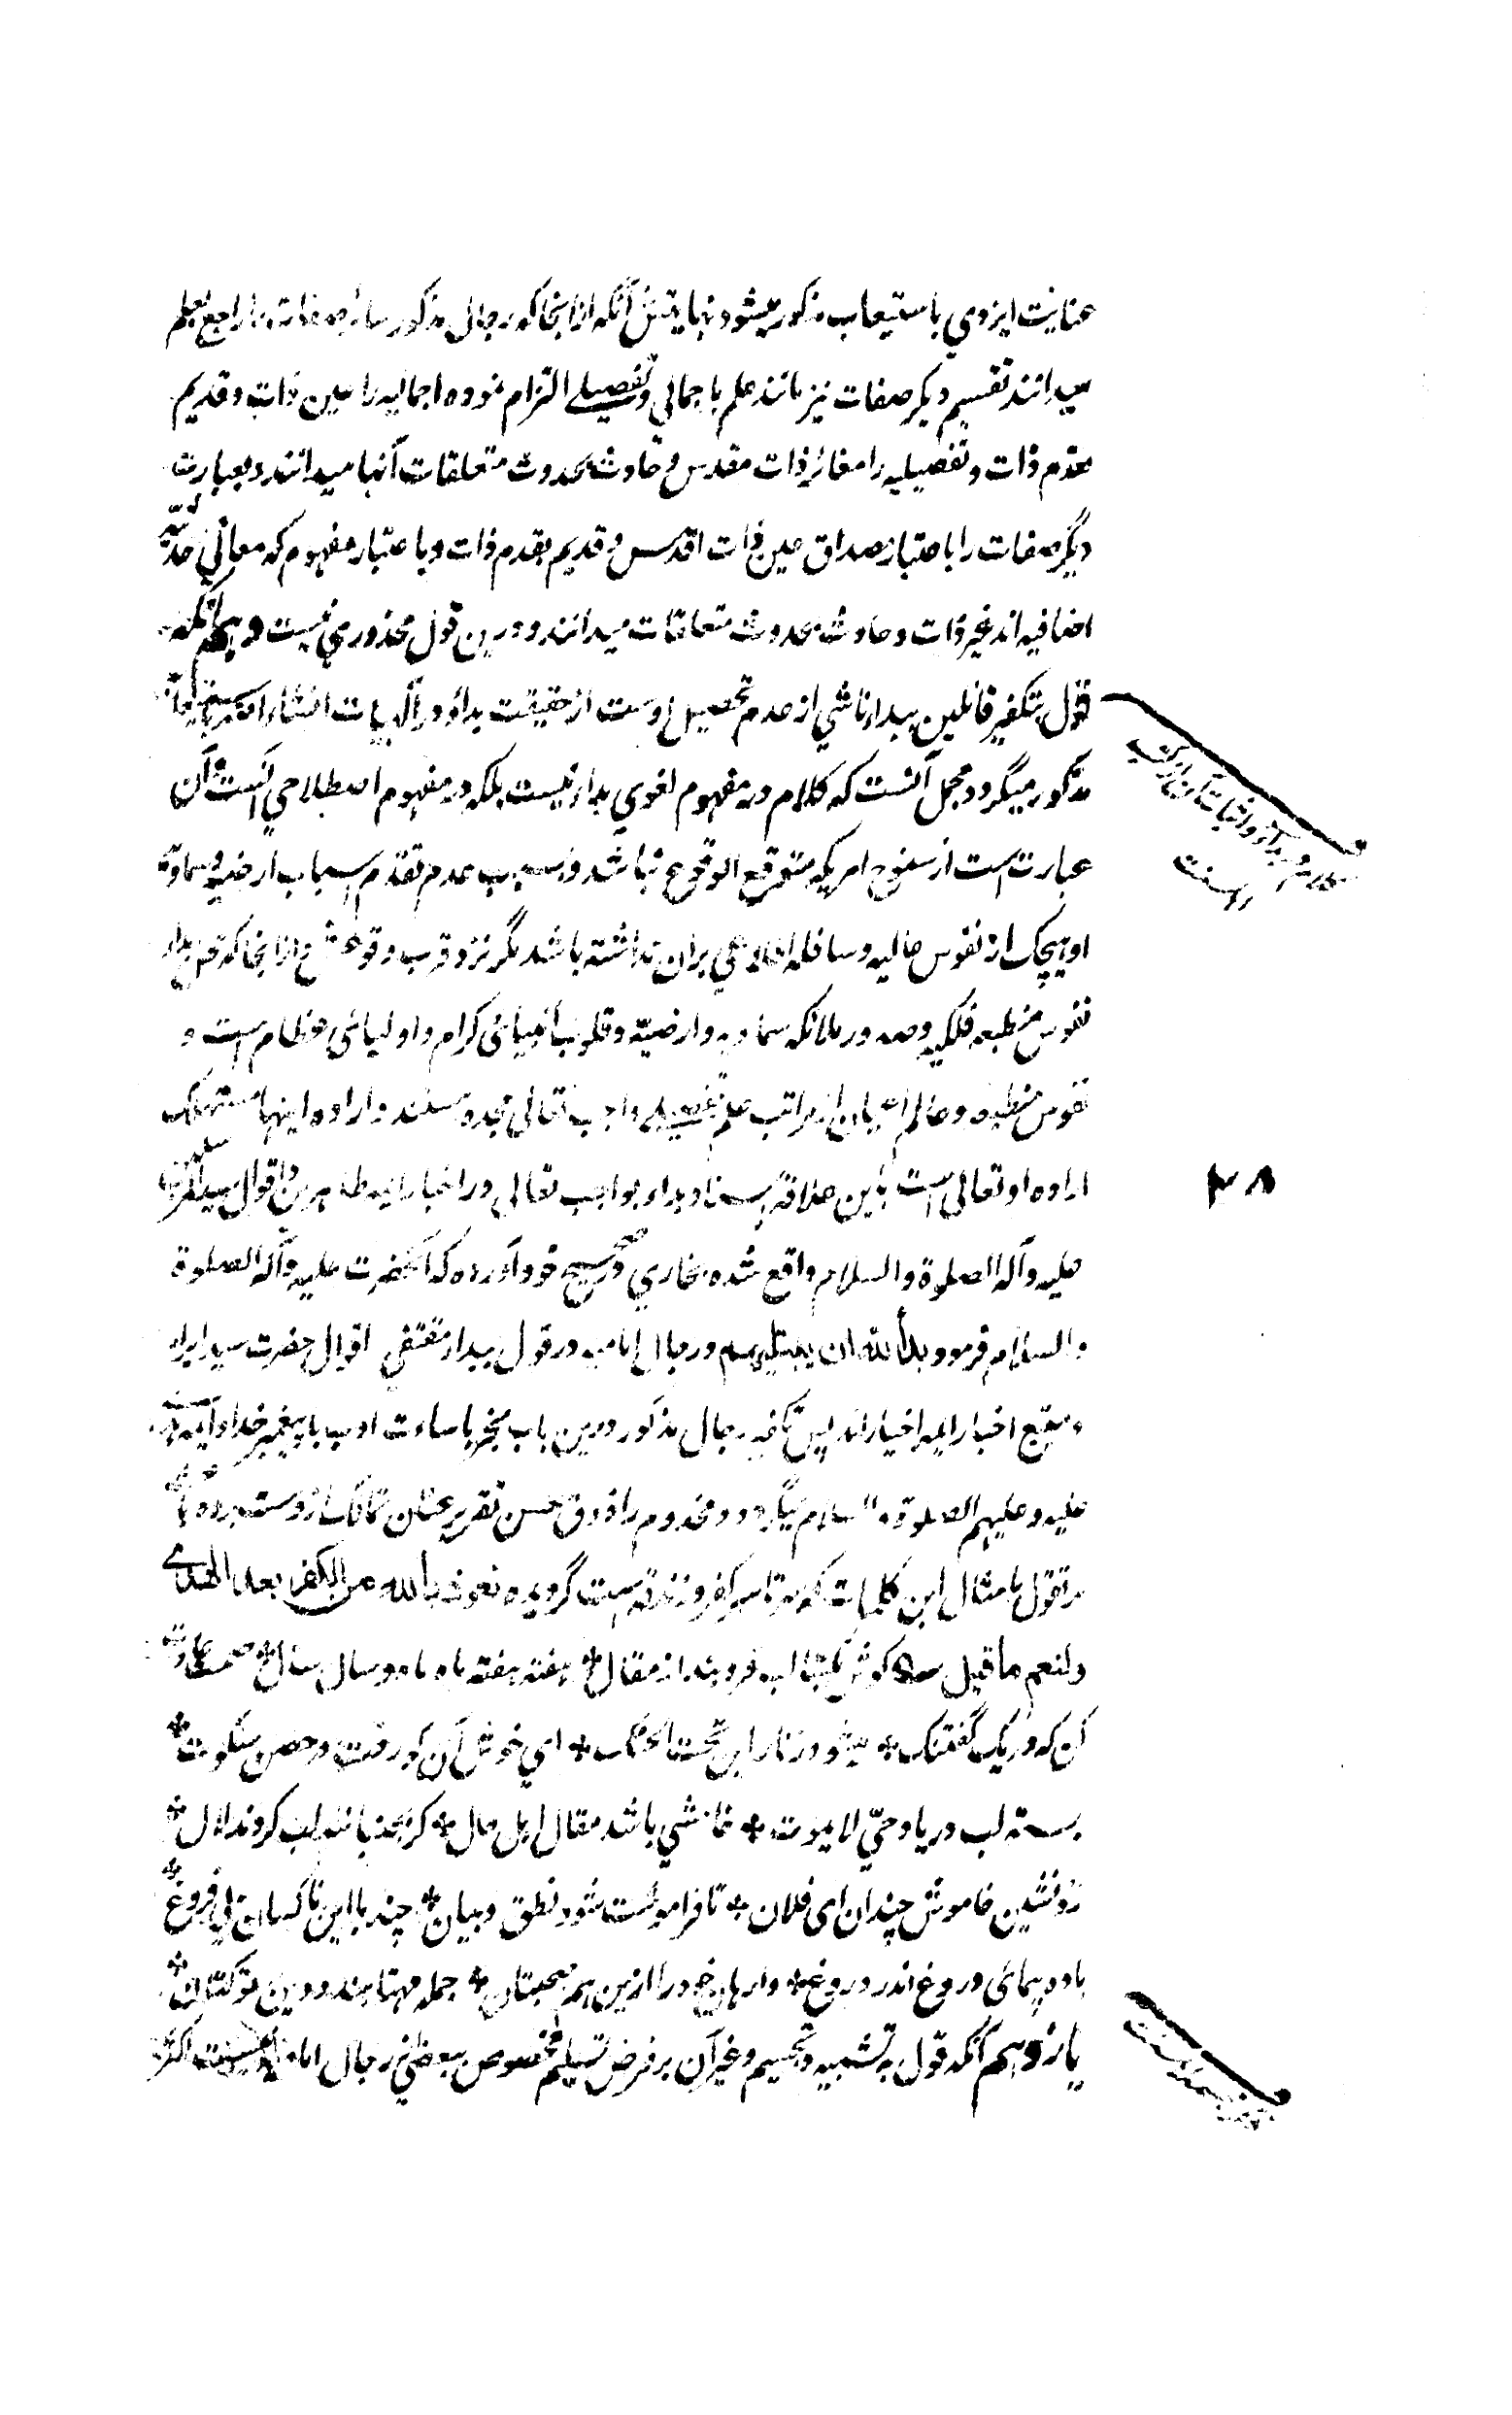 عنایت ایزدي باستیعاب مذکور میشود نهایتش آنکه ازانجا که رجال مذکور سائر صفات را راجع بعلم
میدانند تقسیم دیگر صفات نیز مانند علم باجمالي وتفصیلے التزام نموده اجمالیه را عین ذات و قدیم
بقدم ذات و تفصیلیه را مغائر ذات مقدس و حادث بحدوث متعلقات آنها میدانند و بعبارت
دیگر صفات را باعتبار مصداق عین ذات اقدس و قدیم بقدم ذات و باعتبار مفهوم که معاني
اضافیه اند غیر ذات و حادث بحدوث متعلقات میدانند و درین قول محذوري نیست دهم آنکه
قول بتکفیر قائلین ببداء ناشي از عدم تحصیل اوست از حقیقت بداء و در آلهیات انشاء الله
مذکور میگردد مجمل آنست که کلام در مفهوم لغوي بداء نیست بلکه در مفهوم اصطلاحي است آن
عبارت است از سنوح امریکه متوقع الوقوع نباشد و بسبب عدم تقدم اسباب ارضیه و سماویه
او هیچک از نفوس عالیه و سافله اطلاعي بران نداشته باشد مگر نزد قرب وقوعش و ازانجا که
نفوس منطبعه فلکیه و صدور ملائکه سماویه و ارضیه و قلوب انبیائی کرام و اولیائی عظام است و
نفوس منطبعه و عالم اعیان از مراتب علم تفصیلے واجب تعالی مجده هستند و اراده اینها مستهلک
اراده او تعالی است باین علاقه اسناد بداء بواجب تعالی در اخبار ائمه طاهرین و اقوال
علیه وآله الصلوة والسلام واقع شده بخاري در صحیح خود آورده که آنحضرت علیه وآله الصلوة
والسلام فرمود بدأ لله ان یبتلیهم و رجال امامیه در قول ببداء مقتفي اقوال حضرت سید ابرار
و متبع اخبار ائمه اخیار اند پس تکفیر رجال مذکور درین باب منجر باساءت ادب با پیغمبر خدا و
علیه و علیهم الصلوة والسلام میگردد و مخدوم را ذوق حسن تقریر عنان تمالک از دست برده
بر تقول بامثال این کلمات که سرتاسر کفر و زندقه است گرویده نعوذ بالله من الکفر بعد الهدے
ولنعم ما قیل گوش بگشا لب فروبند از مقال * هفته هفته ماه ماه و سال سال *
آن که در یک گفتنک * میشود زنار این تحت الحنک * اي خوش آن کو رفت در حصن سکوت *
بسته لب در یاد حيّ لا یموت * خامشي باشد مقال اهل حال * گر بجنبانند لب گردند لال *
رو نشین خاموش چندان ای فلان * تا فراموشت شود نطق و بیان * چند با این ناکسان بي فروغ *
باده پیمائی دروغ اندر دروغ * وارهان خود را ازین هم صحبتان * جمله مهتابند و دین تو کتان *
یازدهم آنکه قول به تشبیه و تجسیم و غیر آن بر فرض تسلیم مخصوص ببعضي رجال
کلام در بداء و اثبات آن از کتب
اهل سنت